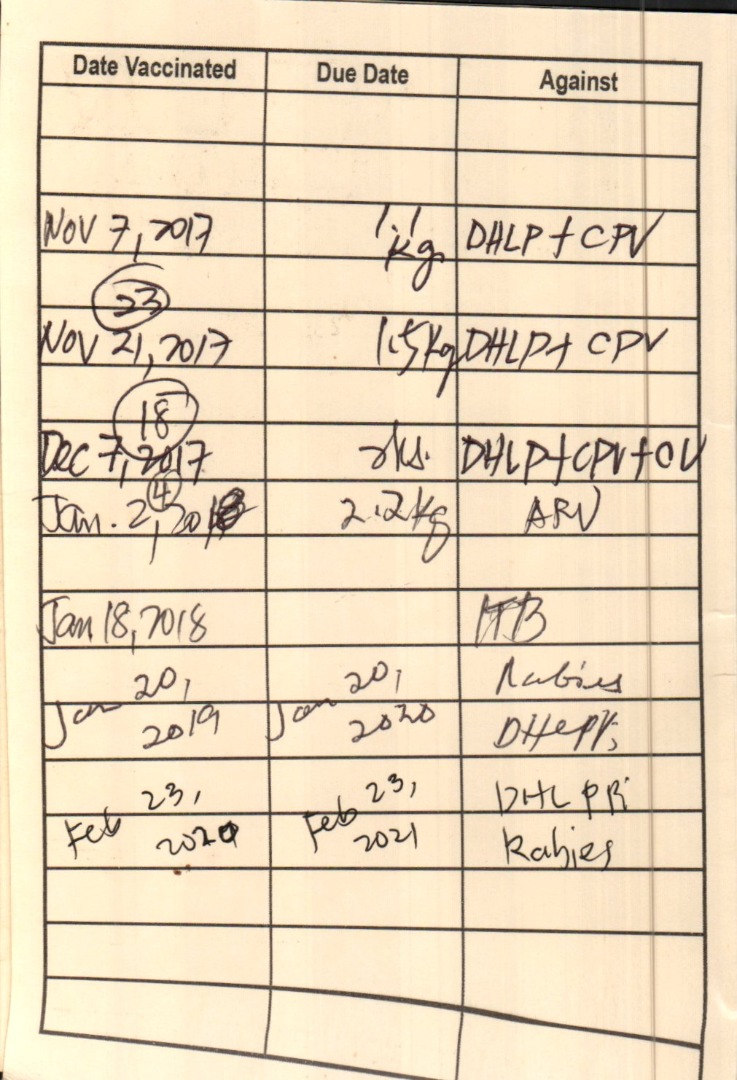 Date Vaccinated Due Date Against
Nov 7, 2017 1.1 kg DHLP + CPV
23
Nov 21, 2017 1.5kg DHLP + CPV
18
Dec 7, 2017 DHLP+CPV+CV
4
Jan. 2, 2018 2.2kg ARV
Jan 18, 2018
Jan 20, 2019 Jan 20, 2020 Rabies
Feb 23, 2020 Feb 23, 2021 Rabies